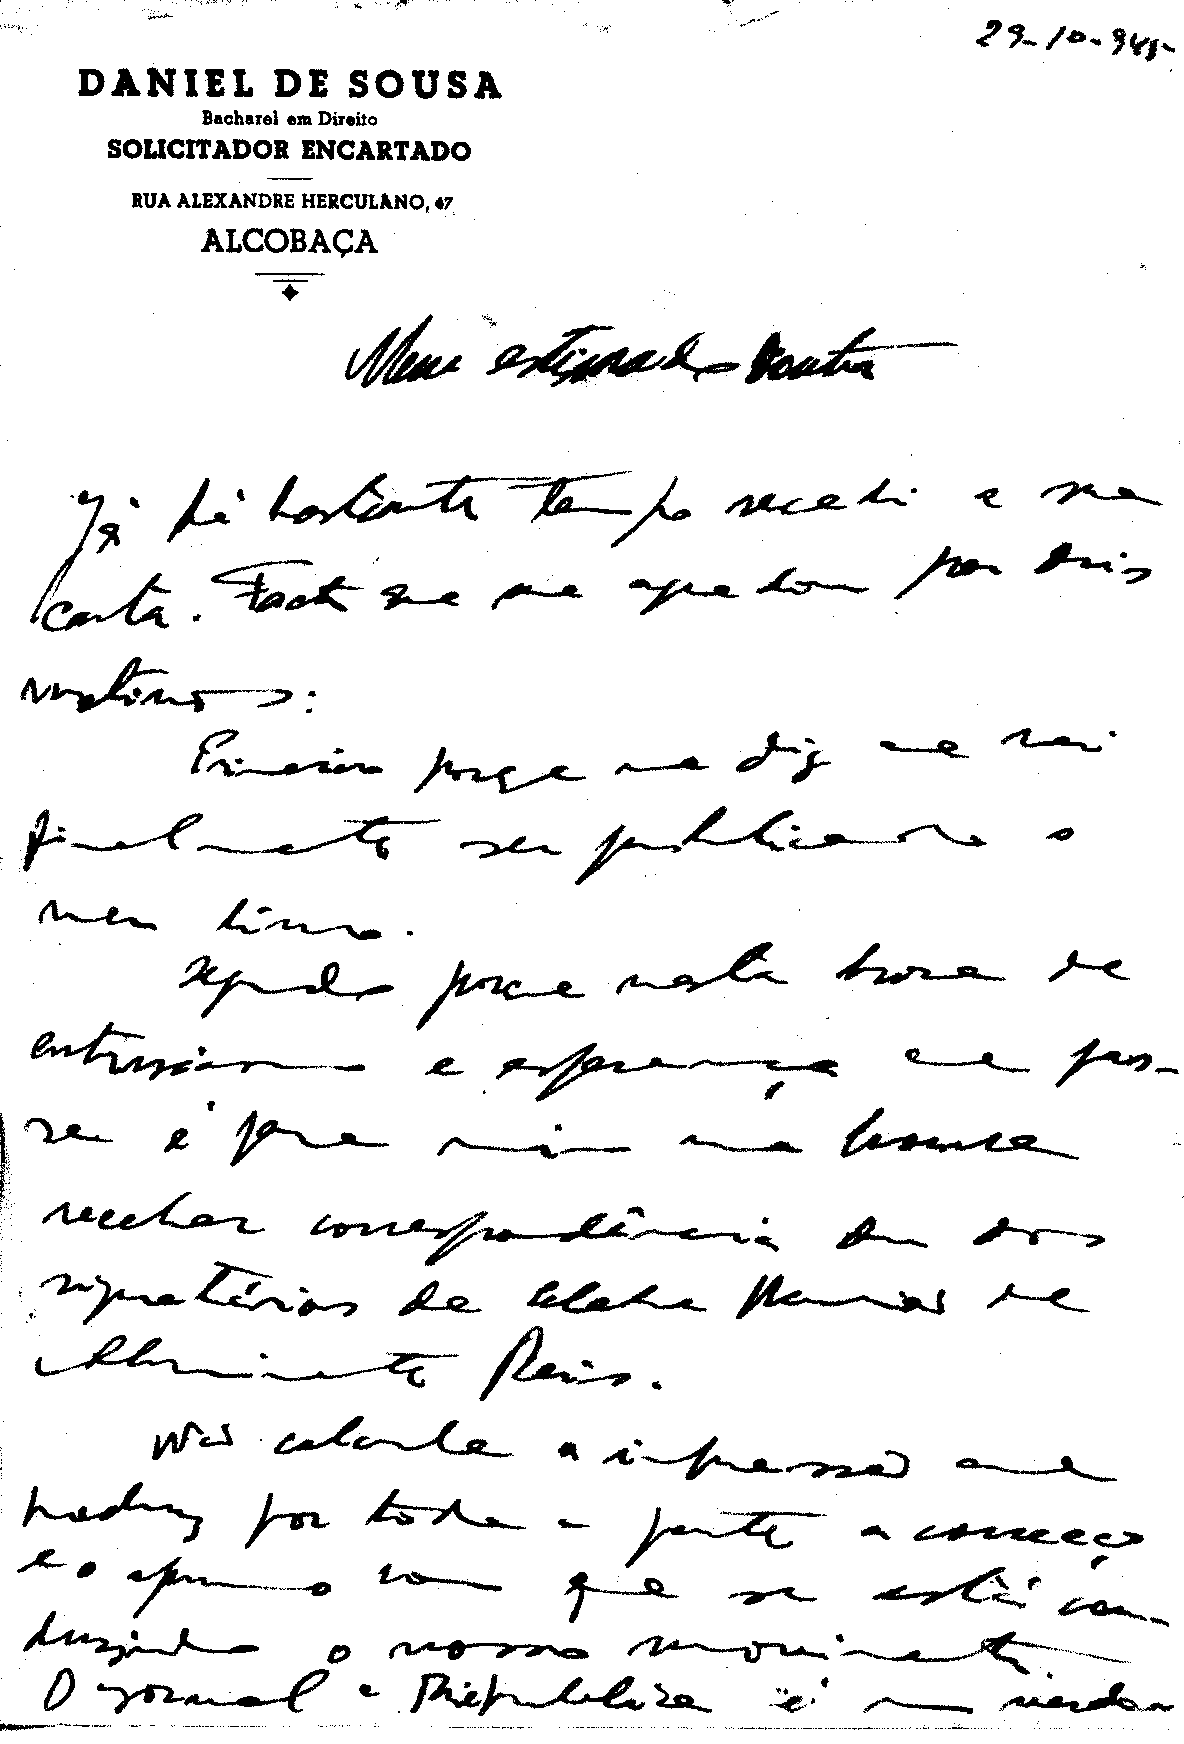 29-10-945
DANIEL DE SOUSA
Bacharel em Direito
SOLICITADOR ENCARTADO
RUA ALEXANDRE HERCULANO, 47
ALCOBAÇA
Meu estimado Doutor
Já há bastante tempo recebi a sua
carta. Facto que me agradou por dois
motivos:
Primeiro porque me diz que vai
finalmente ser publicado o
meu livro.
Segundo porque nesta hora de
entusiasmo e esperança que pas-
sa é para mim uma honra
receber correspondência dum dos
signatários da célebre reunião do
Almirante Reis.
Não calcula a impressão que
produz por toda a parte a correcç
e o aprumo com que se está con-
duzindo o nosso movimento.
O jornal a República é um verda-